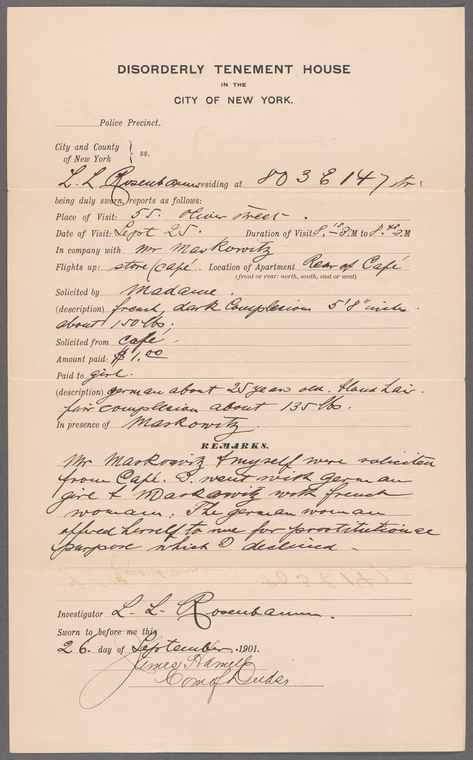 DISORDERLY TENEMENT HOUSE
IN THE
CITY OF NEW YORK.
Police Precinct.
City and County
of New York } ss.
L. L. Rosenbaum residing at 803 E 147 str.
being duly sworn, reports as follows:
Place of Visit: 55. Oliver Street.
Date of Visit: Sept 25. Duration of Visit: 8.15 P.M to 8.45 P.M
In company with Mr Maskowitz
Flights up: store/café. Location of Apartment Rear of Café
(front or rear: north, south, east or west)
Solicited by Madame.
(description) french, dark Complexion 5'8" inch
about 150 lbs.
Solicited from café.
Amount paid: $1.00
Paid to girl.
(description) german about 25 year old. blond hair.
fair complexion about 135 lbs.
In presence of Maskowitz.
REMARKS.
Mr Maskowitz & myself were solicited
from Café. I went with german
girl & Maskowitz with french
woman. The german woman
offered herself to me for prostitution
purpose which I declined.
Investigator L. L. Rosenbaum.
Sworn to before me this
26. day of September, 1901.
James Hamel
Com of Deeds